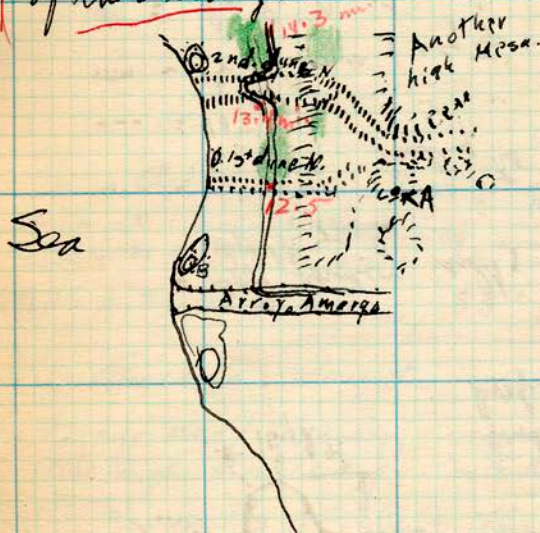 of
14.3 mi.
Another
high Mesa.
2nd. dune N.
13.4 mi.
1st dune N.
12.5
Sea
B
Arroyo Amargo